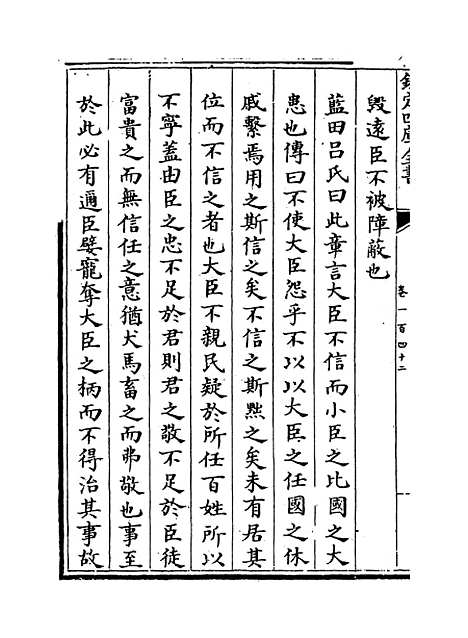 欽定四庫全書
卷一百四十二
毀遠臣不被障蔽也
藍田吕氏曰此章言大臣不信而小臣之比國之大
患也傳曰不使大臣怨乎不以以大臣之任國之休
戚繫焉用之斯信之矣不信之斯黜之矣未有居其
位而不信之者也大臣不親民疑於所任百姓所以
不寧蓋由臣之忠不足於君則君之敬不足於臣徒
富貴之而無信任之意猶犬馬畜之而弗敬也事至
於此必有邇臣嬖寵奪大臣之柄而不得治其事故